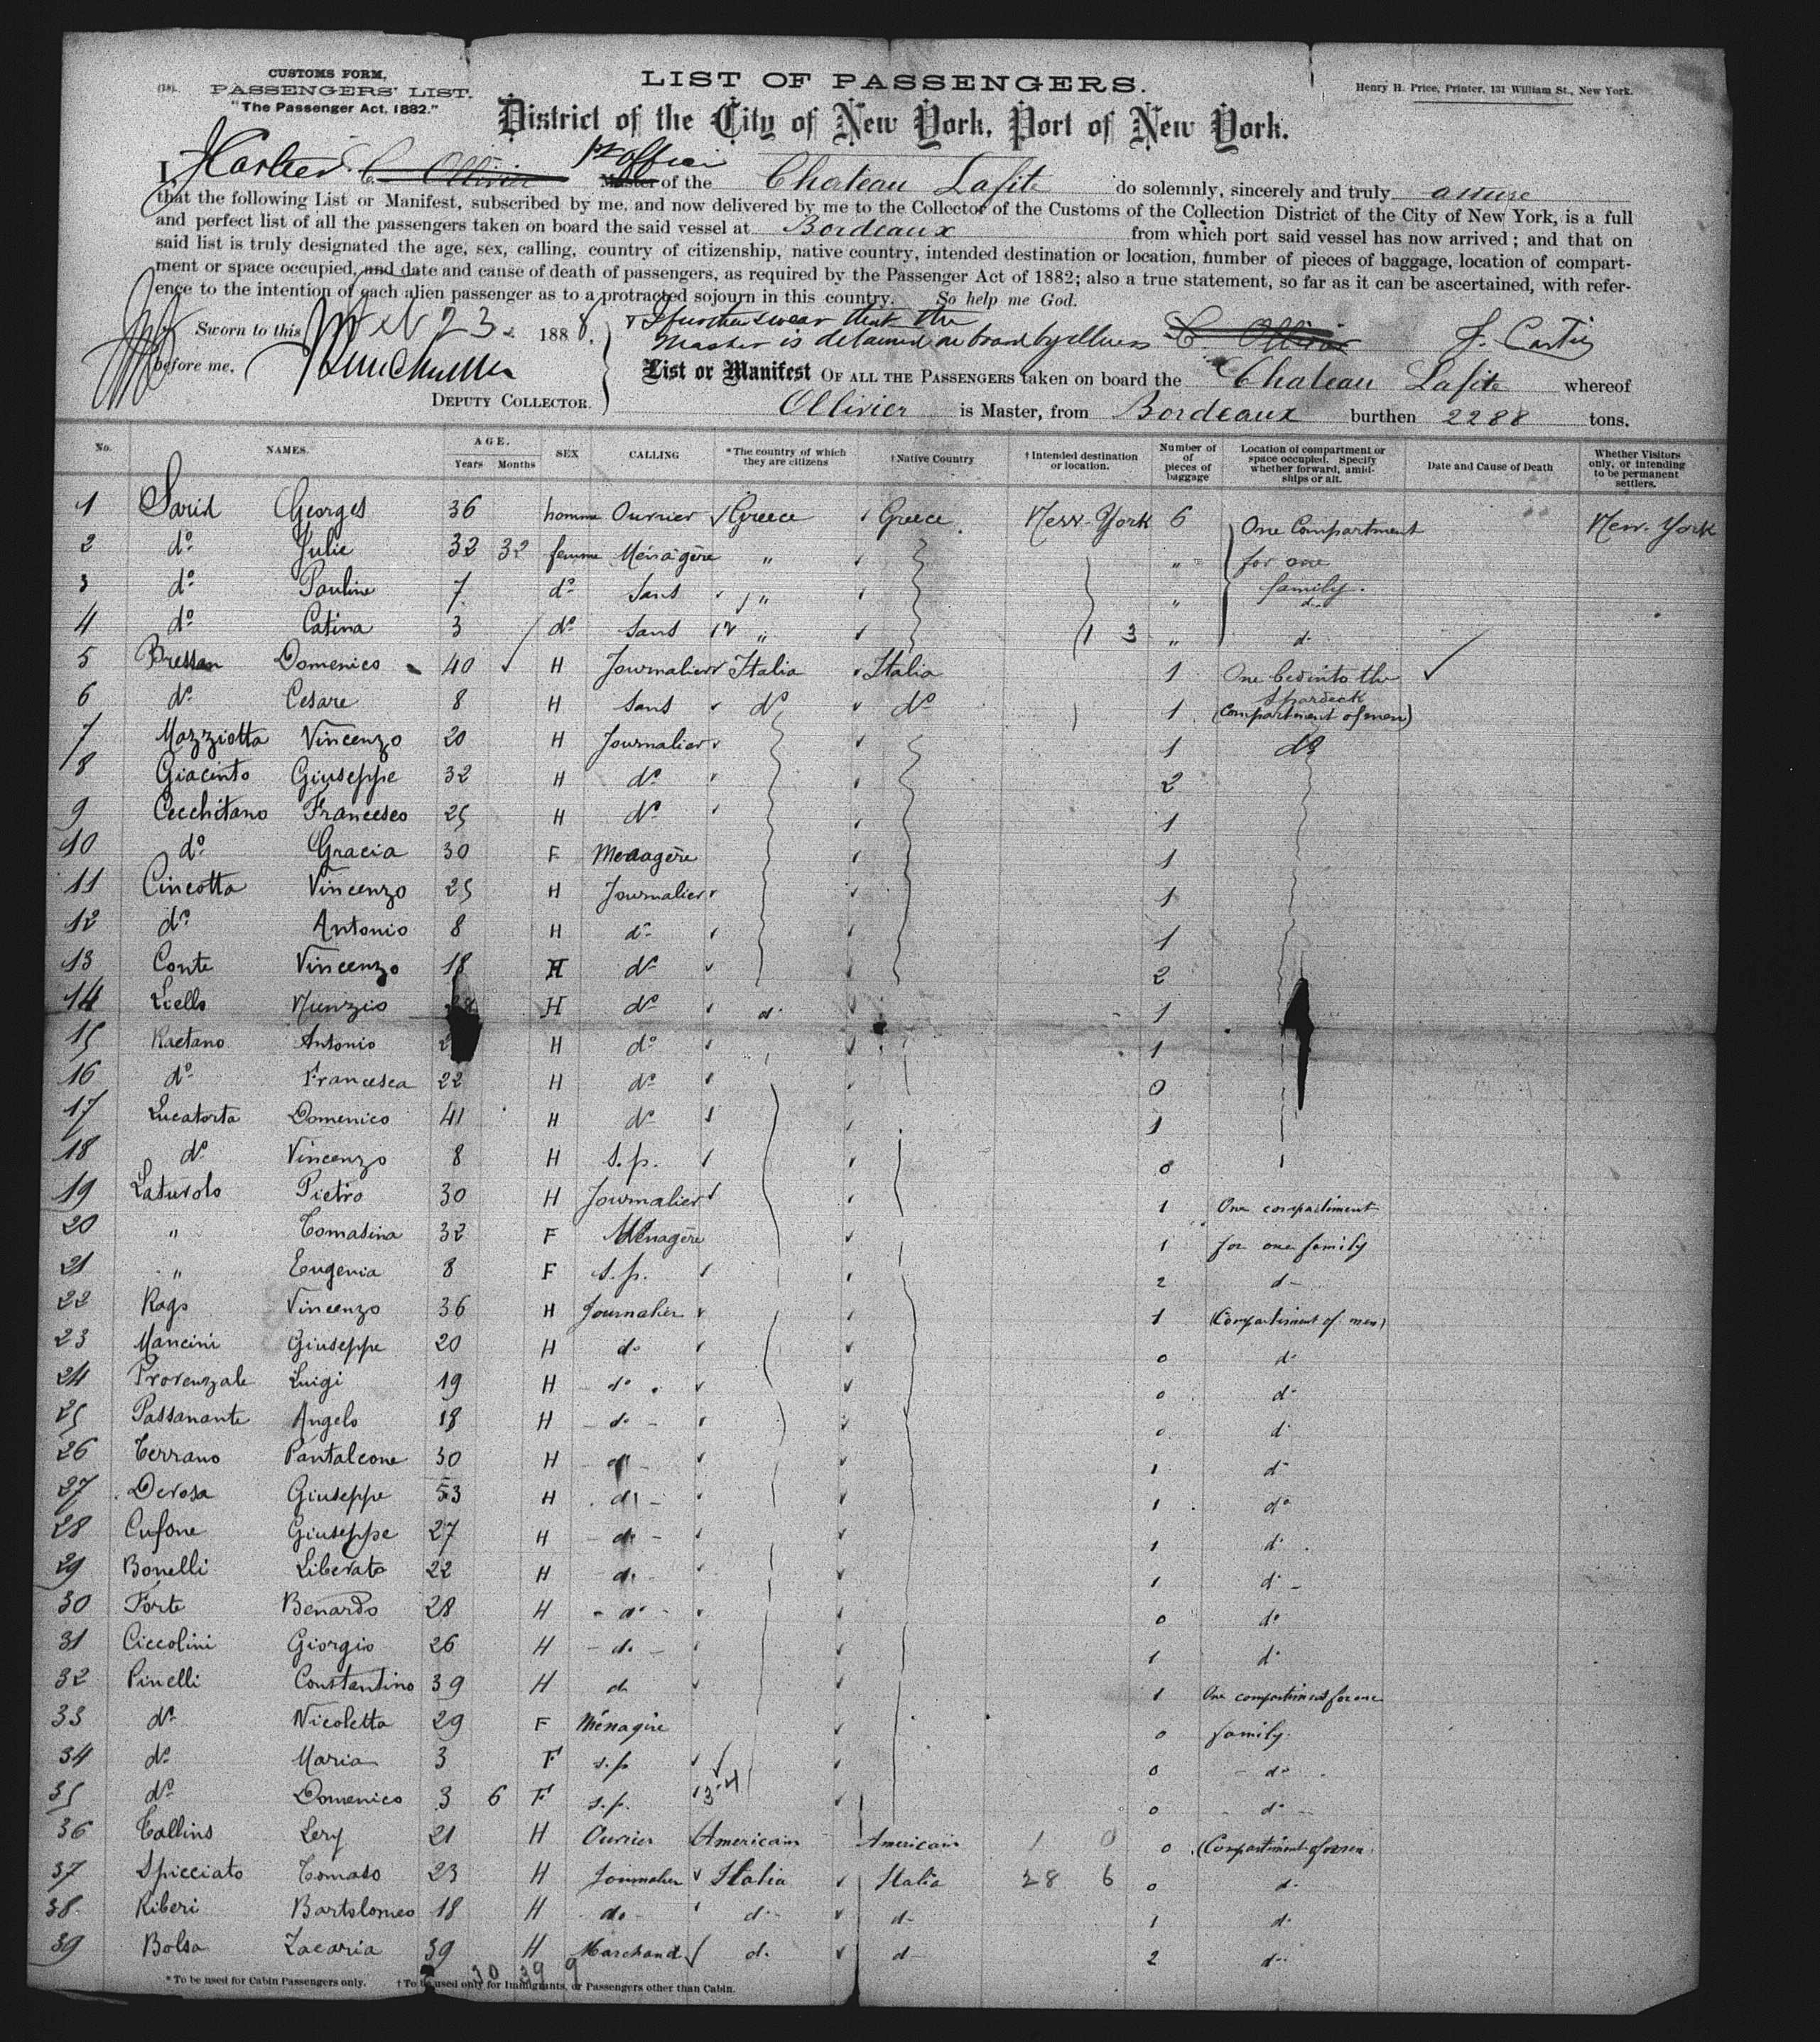 CUSTOMS FORM,
PASSENGERS' LIST.
"The Passenger Act, 1882."
LIST OF PASSENGERS.
Henry H. Price, Printer, 131 William St., New York.
District of the City of New York, Port of New York.
I, C. Ollivier Master of the Chateau Lafite do solemnly, sincerely and truly
that the following List or Manifest, subscribed by me, and now delivered by me to the Collector of the Customs of the Collection District of the City of New York, is a full
and perfect list of all the passengers taken on board the said vessel at Bordeaux from which port said vessel has now arrived; and that on
said list is truly designated the age, sex, calling, country of citizenship, native country, intended destination or location, number of pieces of baggage, location of compart-
ment or space occupied, and date and cause of death of passengers, as required by the Passenger Act of 1882; also a true statement, so far as it can be ascertained, with refer-
ence to the intention of each alien passenger as to a protracted sojourn in this country. So help me God.
Sworn to this 23 1888, I further swear that the
Master is detained on board by illness C. Ollivier
before me,
DEPUTY COLLECTOR.
List or Manifest OF ALL THE PASSENGERS taken on board the Chateau Lafite whereof
Ollivier is Master, from Bordeaux burthen 2288 tons.
No. NAMES. AGE. Years Months SEX CALLING *The country of which they are citizens †Native Country †Intended destination or location. Number of pieces of baggage Location of compartment or space occupied. Specify whether forward, amidships or aft. Date and Cause of Death Whether Visitors only, or intending to be permanent settlers.
1 Georges 36 homme Ouvrier Greece Greece New-York 6 One Compartment New-York
2 do Julie 32 32 femme Ménagère " " for one
3 do Pauline 7 do Sans " " family. do
4 do Catina 3 do Sans 12 " 1 3 " do
5 Bressan Domenico 40 H Journalier Italia Italia 1 One bed into the
6 do Cesare 8 H Sans do do 1 Spardeck (Compartment of men)
7 Mazziotta Vincenzo 20 H Journalier 1 do
8 Giacinto Giuseppe 32 H do 2
9 Cecchitano Francesco 25 H do 1
10 do Gracia 30 F Menagère 1
11 Cincotta Vincenzo 25 H Journalier 1
12 do Antonio 8 H do 1
13 Conte Vincenzo 18 H do 2
14 Liello Nunzio H do d 1
15 Kaetano Antonio H do 1
16 do Francesca 22 H do 0
17 Lucatorta Domenico 41 H do 1
18 do Vincenzo 8 H s.p. 0
19 Laturolo Pietro 30 H Journalier 1 One compartiment
20 " Tomasina 32 F Ménagère 1 for one family
21 " Eugenia 8 F s.p. 2 d
22 Rago Vincenzo 36 H Journalier 1 (Compartiment of men)
23 Mancini Giuseppe 20 H do 0 do
24 Provenzale Luigi 19 H do 0 do
25 Passanante Angelo 18 H do 0 d
26 Terrano Pantaleone 30 H do 1 do
27 Derosa Giuseppe 53 H do 1 do
28 Cufone Giuseppe 27 H do 1 do
29 Bonelli Liberato 22 H do 1 d
30 Forte Benardo 28 H do 0 do
31 Ciccolini Giorgio 26 H do 1 do
32 Pinelli Constantino 39 H do 1 One compartiment for one
33 do Nicoletta 29 F Ménagère 0 family.
34 do Maria 3 F s.p 0 do
35 do Domenico 3 6 F s.p. 0 do
36 Collins Lery 21 H Ouvrier Americain Americain 1 0 0 (Compartiment of men)
37 Spicciato Tomaso 23 H Journalier Italia Italia 28 6 0 do
38 Riberi Bartolomeo 18 H do d d 1 do
39 Bolsa Zacaria 39 H Marchand d d 2 do
30 39 9
*To be used for Cabin Passengers only. †To be used only for Immigrants, or Passengers other than Cabin.